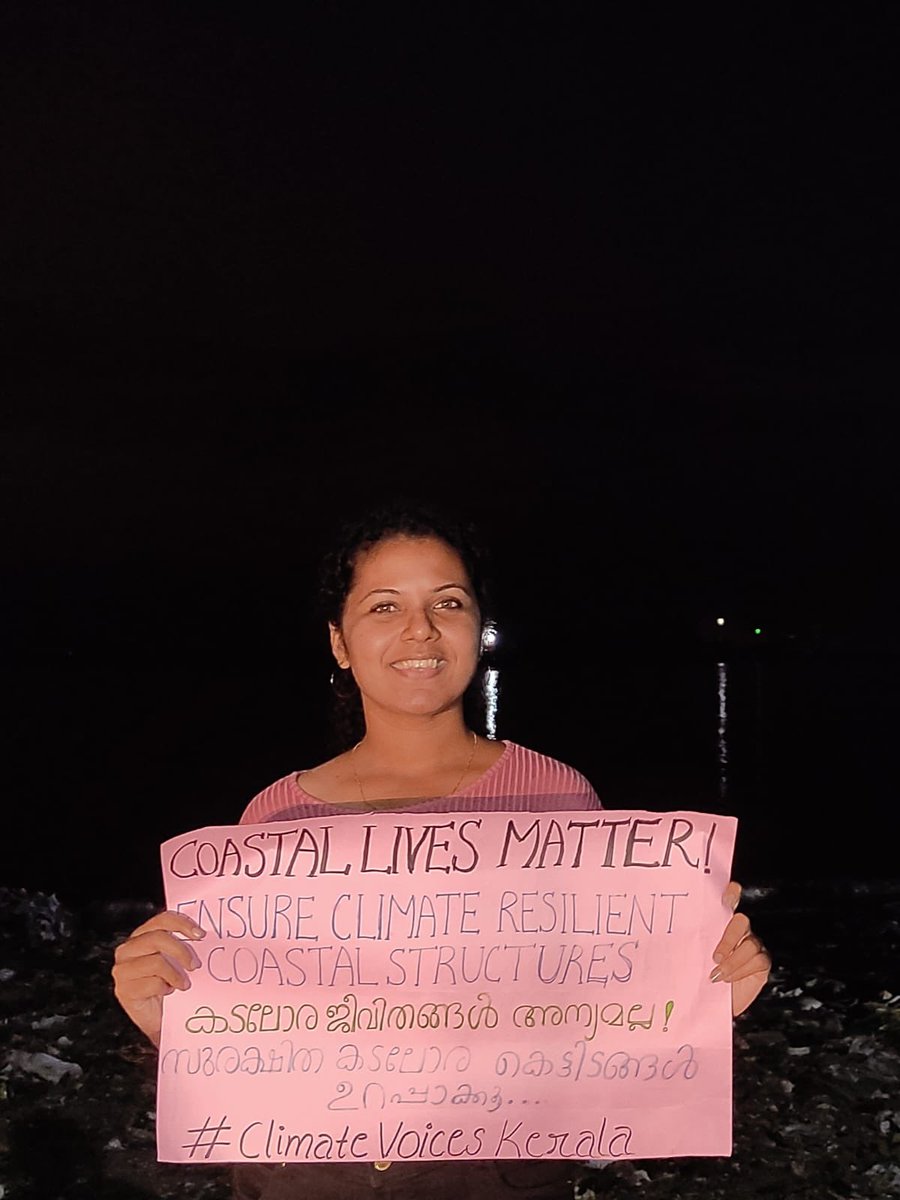 COASTAL LIVES MATTER!
ENSURE CLIMATE RESILIENT
COASTAL STRUCTURES
കടലോര ജീവിതങ്ങൾ അന്യമല്ല!
സുരക്ഷിത കടലോര കെട്ടിടങ്ങൾ
ഉറപ്പാക്കൂ...
#Climate Voices Kerala